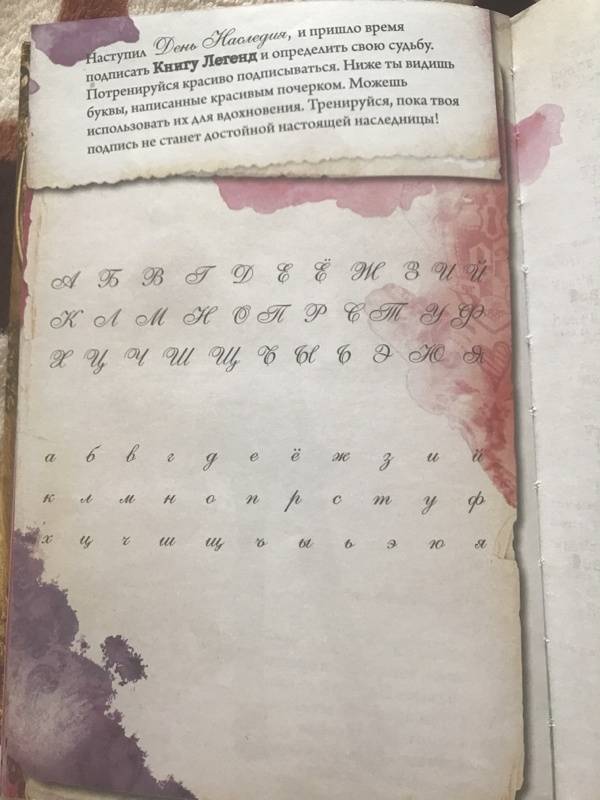 Наступил День Наследия, и пришло время
подписать Книгу Легенд и определить свою судьбу.
Потренируйся красиво подписываться. Ниже ты видишь
буквы, написанные красивым почерком. Можешь
использовать их для вдохновения. Тренируйся, пока твоя
подпись не станет достойной настоящей наследницы!
А Б В Г Д Е Ё Ж З И Й
К Л М Н О П Р С Т У Ф
Х Ц Ч Ш Щ Ъ Ы Ь Э Ю Я
а б в г д е ё ж з и й
к л м н о п р с т у ф
х ц ч ш щ ъ ы ь э ю я